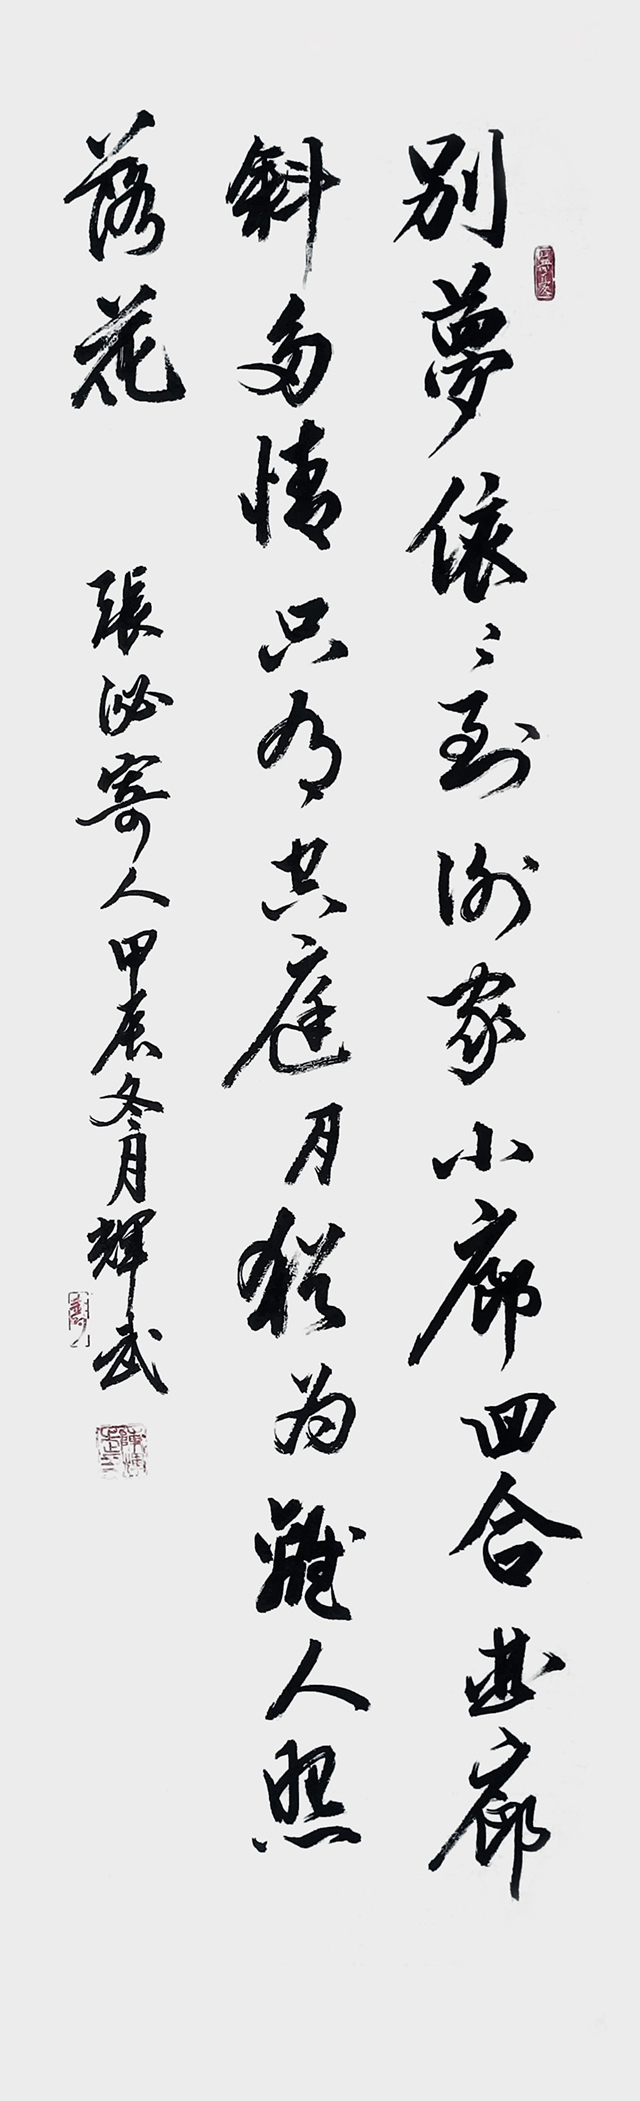 別夢依〻到谢家小廊回合曲廊
斜多情只有共庭月猶为離人照
落花 張泌寄人甲辰冬月輝武